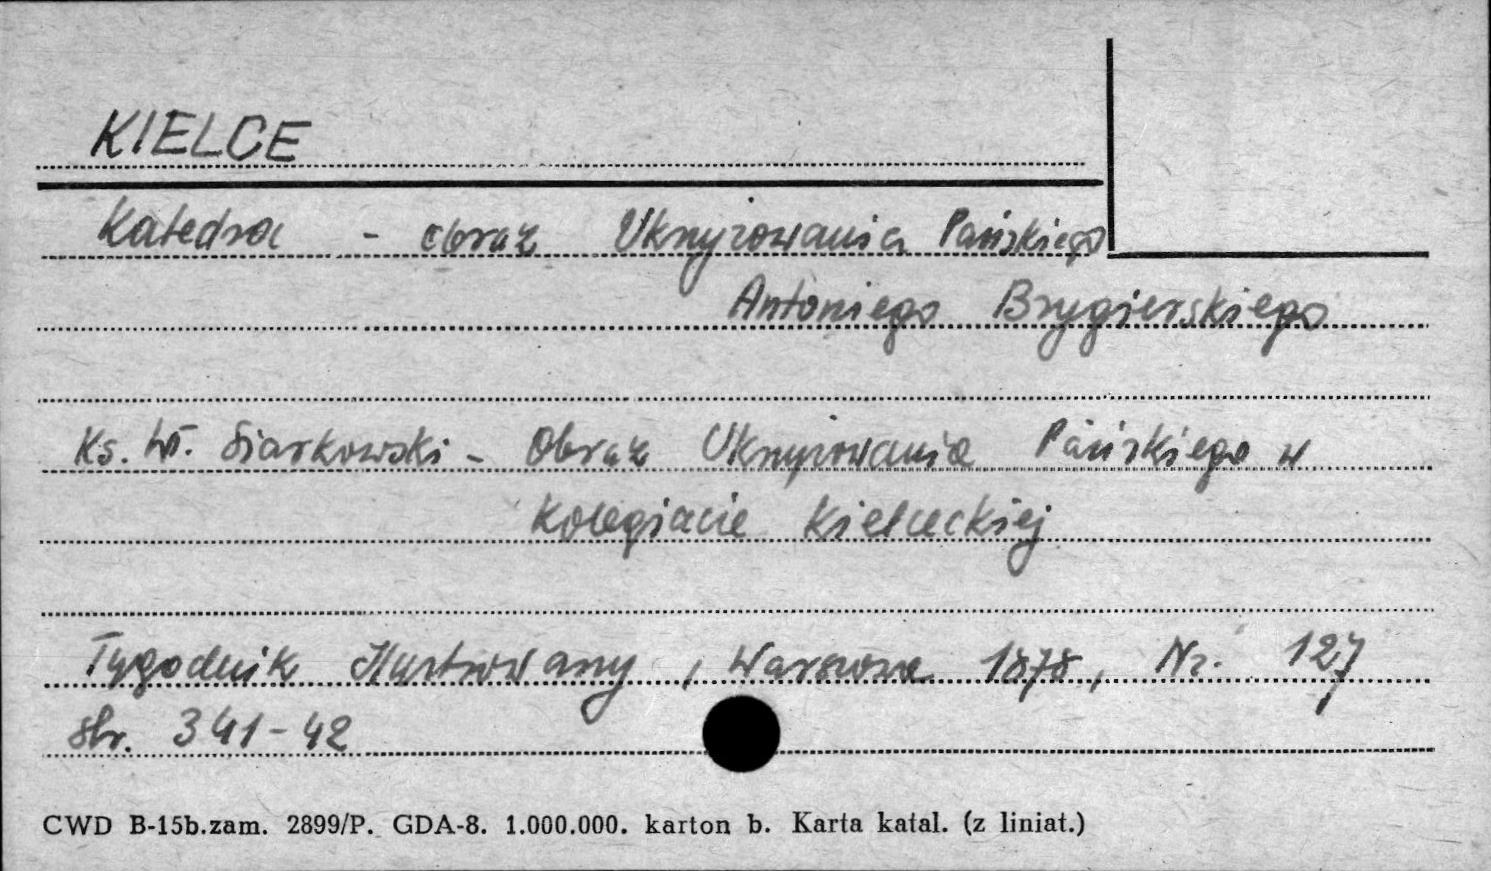 KIELCE
Katedra - obraz Ukrzyżowania Pańskiego
Antoniego Brygierskiego
Ks. Wł. Siarkowski - Obraz Ukrzyżowania Pańskiego w
Kolegiacie Kieleckiej
Tygodnik Ilustrowany, Warszawa 1878, Nr. 127
str. 341-42
CWD B-15b.zam. 2899/P. GDA-8. 1.000.000. karton b. Karta katal. (z liniat.)